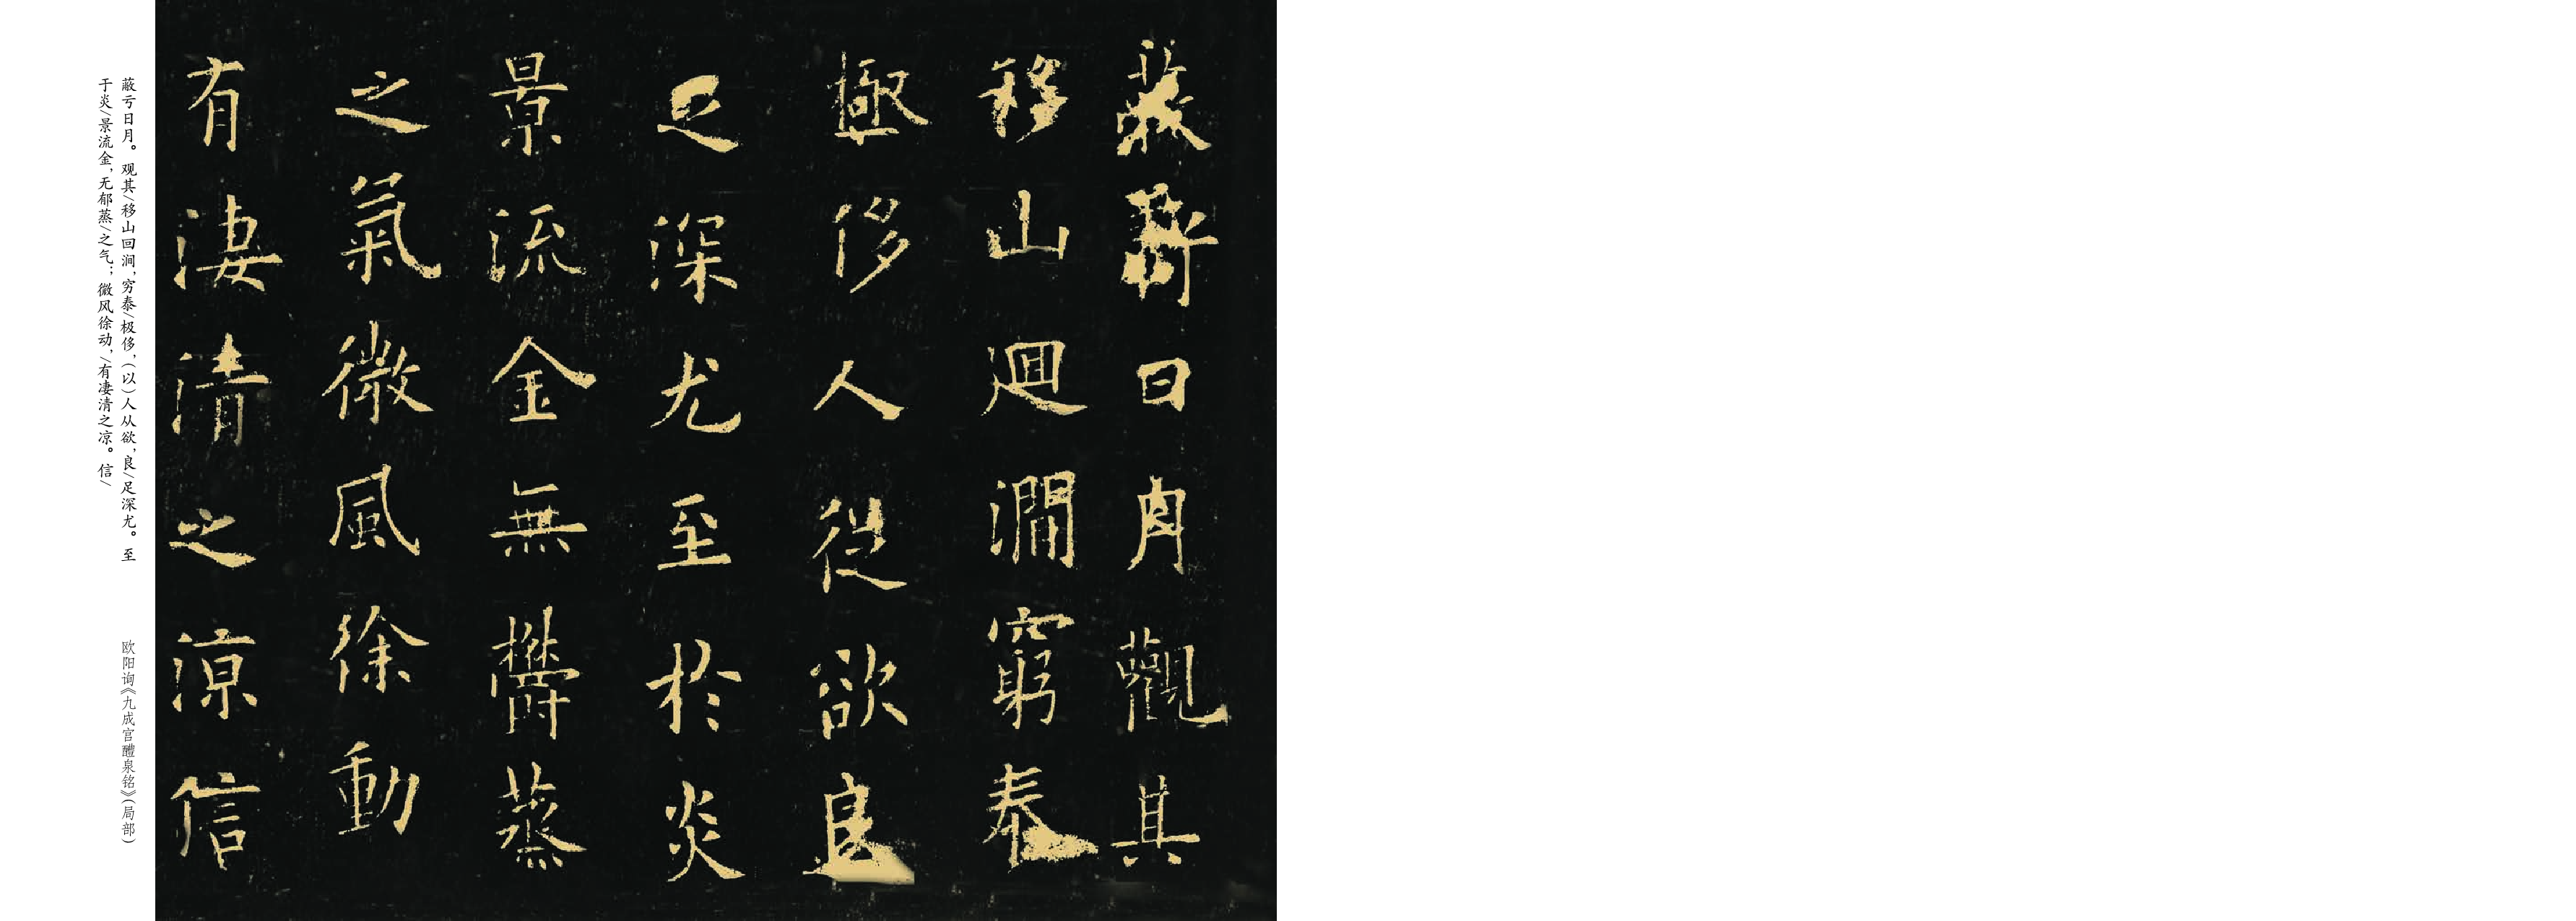 蔽虧日月觀其
移山迴澗窮泰
極侈人從欲良
足深尤至於炎
景流金無欝蒸
之氣微風徐動
有淒清之涼信
蔽亏日月。观其/移山回涧，穷泰/极侈，（以）人从欲，良/足深尤。至
于炎/景流金，无郁蒸/之气；微风徐动，/有凄清之凉。信/
欧阳询《九成宫醴泉铭》（局部）